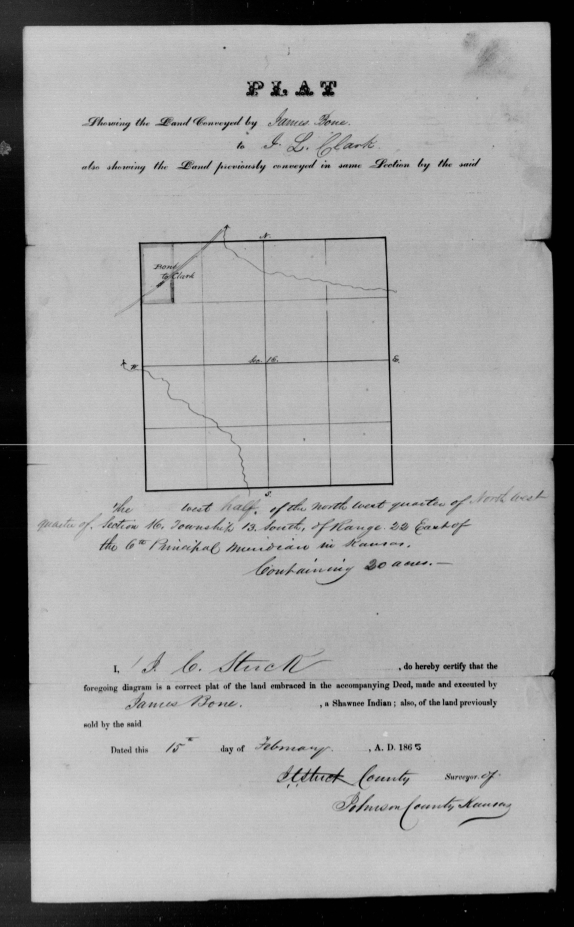 PLAT
Showing the Land Conveyed by James Bone.
to J. L. Clark.
also showing the Land previously conveyed in same Section by the said
N.
Bone
to Clark
W.
Sec. 16.
E.
S.
The west half, of the North west quarter of North West
quarter of, Section 16. Township 13. South, of Range 22 East of
the 6th Principal Meridian in Kansas.
Containing 20 acres.—
I, J. C. Stuck , do hereby certify that the
foregoing diagram is a correct plat of the land embraced in the accompanying Deed, made and executed by
James Bone. , a Shawnee Indian; also, of the land previously
sold by the said
Dated this 15th day of February. , A. D. 186
J C Stuck County Surveyor. of.
Johnson County Kansas